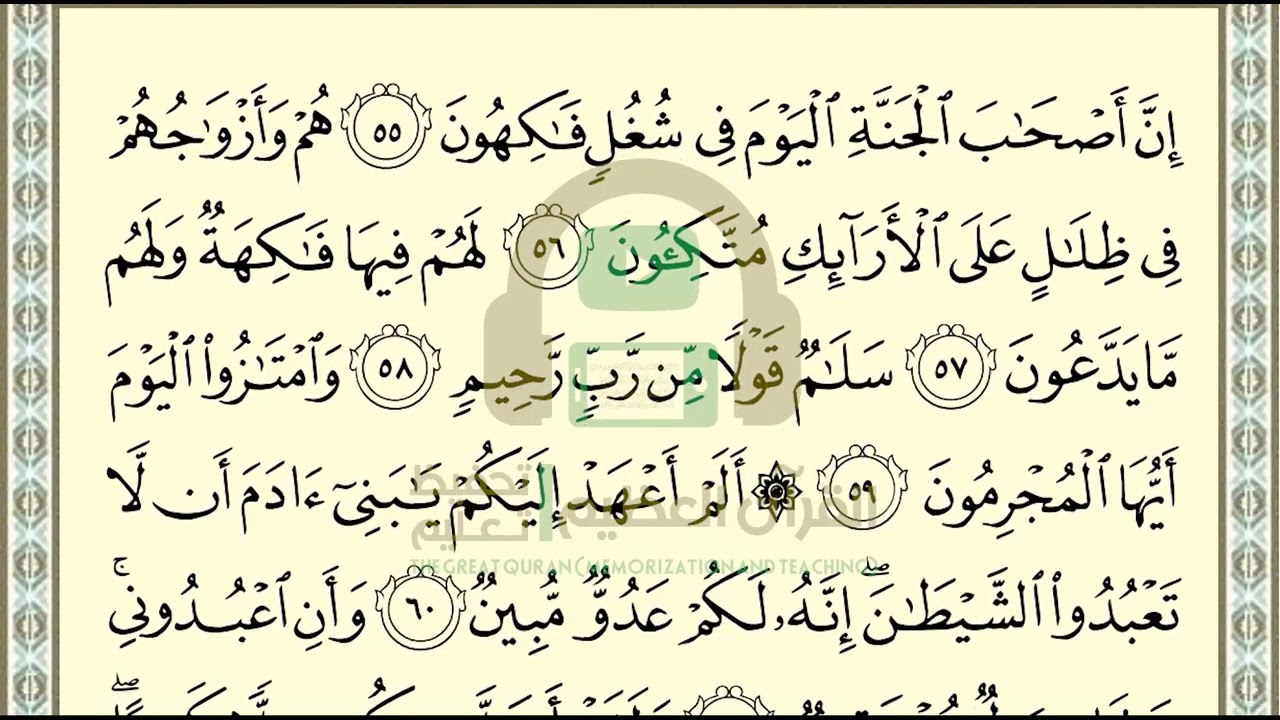 إِنَّ أَصْحَـٰبَ ٱلْجَنَّةِ ٱلْيَوْمَ فِى شُغُلٍ فَـٰكِهُونَ ٥٥ هُمْ وَأَزْوَٰجُهُمْ
فِى ظِلَـٰلٍ عَلَى ٱلْأَرَآئِكِ مُتَّكِـُٔونَ ٥٦ لَهُمْ فِيهَا فَـٰكِهَةٌ وَلَهُم
مَّا يَدَّعُونَ ٥٧ سَلَـٰمٌ قَوْلًا مِّن رَّبٍّ رَّحِيمٍ ٥٨ وَٱمْتَـٰزُوا۟ ٱلْيَوْمَ
أَيُّهَا ٱلْمُجْرِمُونَ ٥٩ ۞ أَلَمْ أَعْهَدْ إِلَيْكُمْ يَـٰبَنِىٓ ءَادَمَ أَن لَّا
تَعْبُدُوا۟ ٱلشَّيْطَـٰنَ ۖ إِنَّهُۥ لَكُمْ عَدُوٌّ مُّبِينٌ ٦٠ وَأَنِ ٱعْبُدُونِى ۚ
تحفيظ القرآن العظيم
تعليم
THE GREAT QURAN (MEMORIZATION AND TEACHING)